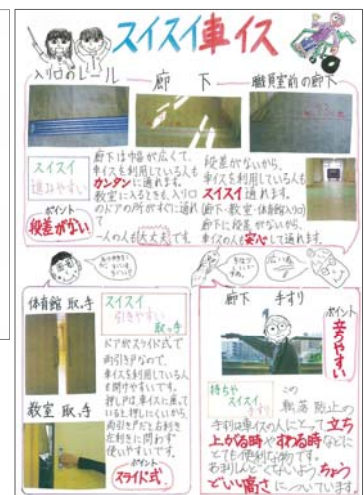 スイスイ車イス
入り口のレール
廊下
職員室前の廊下
スイスイ
進みやすい
ポイント
段差がない
廊下は中幅が広くて、
車イスを利用している人も
カンタンに通れます。
教室に入るときも、入り口
のドアの所がすぐに通れ
て
一人の人も大丈夫です。
段差がないから、
車イスを利用している人も
スイスイ通れます。
(廊下・教室・体育館入り口)
廊下に段差がないから、
車イスの人も安心して通れます。
体育館 取っ手
スイスイ
引きやすい
取っ手
ドアがスライド式で
両引き戸なので、
車イスを利用している人
も開けやすいです。
押し戸は、車イスに乗って
いると押しにくいから、
両引き戸だと右利き
左利きに問わず
使いやすいです。
ポイント
スライド式
教室 取っ手
廊下 手すり
ポイント
立ちやすい
持ちや
スイスイ
手すり
この
転落防止の
手すりは車イスの人にとって立ち
上がる時やすわる時などに
とても便利な物です。
ちょう
どいい高さについています。